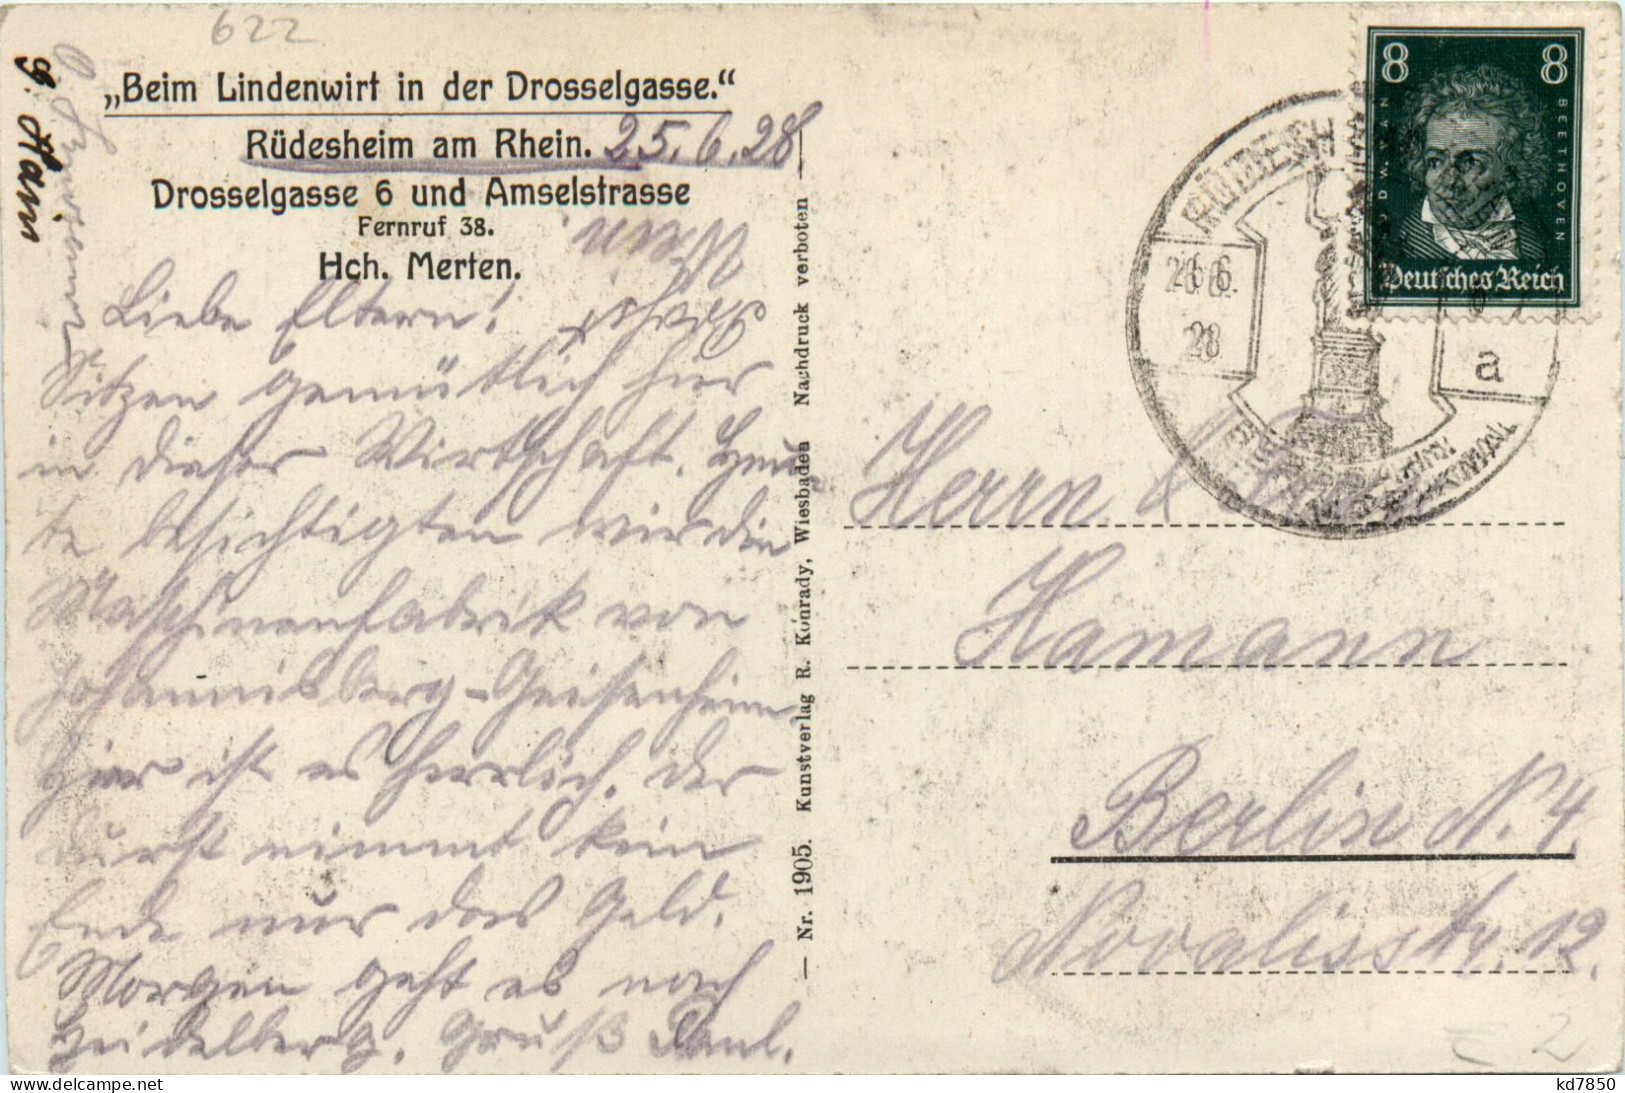 622
„Beim Lindenwirt in der Drosselgasse.“
Rüdesheim am Rhein. 25.6.28
Drosselgasse 6 und Amselstrasse
Fernruf 38.
Hch. Merten.
Liebe Eltern!
Sitzen gemütlich hier
in dieser Wirtschaft. Heu-
te besichtigten wir die
Maschinenfabrik von
Johannisberg-Geisenheim
Hier ist es herrlich. Der
Durst nimmt kein
Ende nur das Geld.
Morgen geht es nach
Heidelberg. Gruß Paul.
G. Hain
— Nr. 1905. Kunstverlag R. Konrady, Wiesbaden Nachdruck verboten —
8 8
BEETHOVEN
Deutsches Reich
RÜDESH
26.6.
28
a
Herrn &
Hamann
Berlin N. 4.
Novalisstr. 12.
2
kd7850